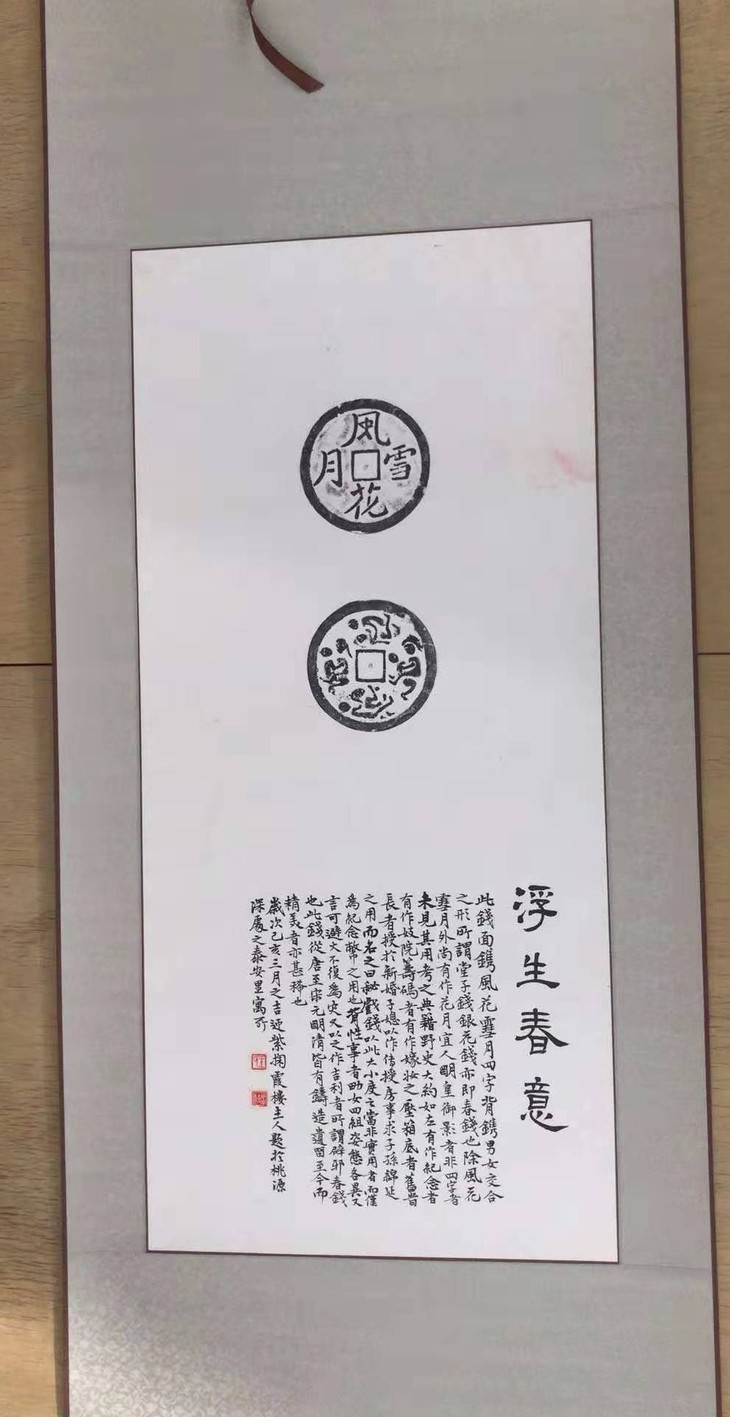 風花雪月
浮生春意
此錢面鐫風花雪月四字背鐫男女交合
之形所謂堂子錢銀花錢亦即春錢也除風花
雪月外尚有作花月宜人明皇御影者非四字者
未見其用考之典籍野史大約如左有作紀念者
有作妓院籌碼者有作嫁妝之壓箱底者舊當
長者授於新婚子媳以作傳授房事求子孫綿延
之用而名之曰秘戲錢以此大小度之當非實用者而僅
為紀念幣之用也背性事者男女四組姿態各異又
言可避火不復為災又以之作吉利者所謂辟邪春錢
也此錢從唐至宋元明清皆有鑄造遺留至今而
精美者亦甚稀也
歲次己亥三月之吉近紫掬霞樓主人題於桃源
深處之泰安里寓所